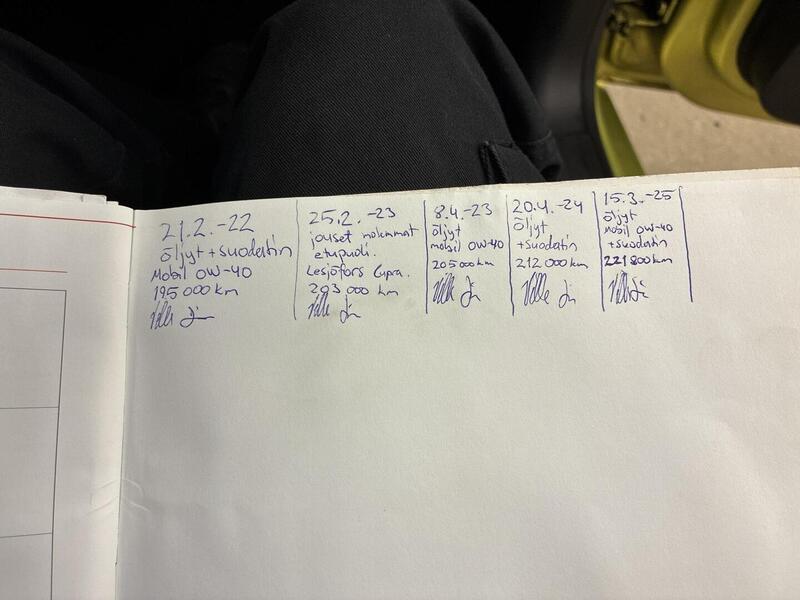 21.2.-22
öljyt + suodatin
Mobil 0W-40
195 000 km
Ville
25.2.-23
jouset molemmat
etupuoli.
Lesjöfors Cupra.
203 000 km
Ville
8.4.-23
öljyt
mobil 0W-40
205 000 km
Ville
20.4.-24
öljyt
+suodatin
212 000 km
Ville
15.3.-25
öljyt
Mobil 0W-40
+suodatin
221 800 km
Ville